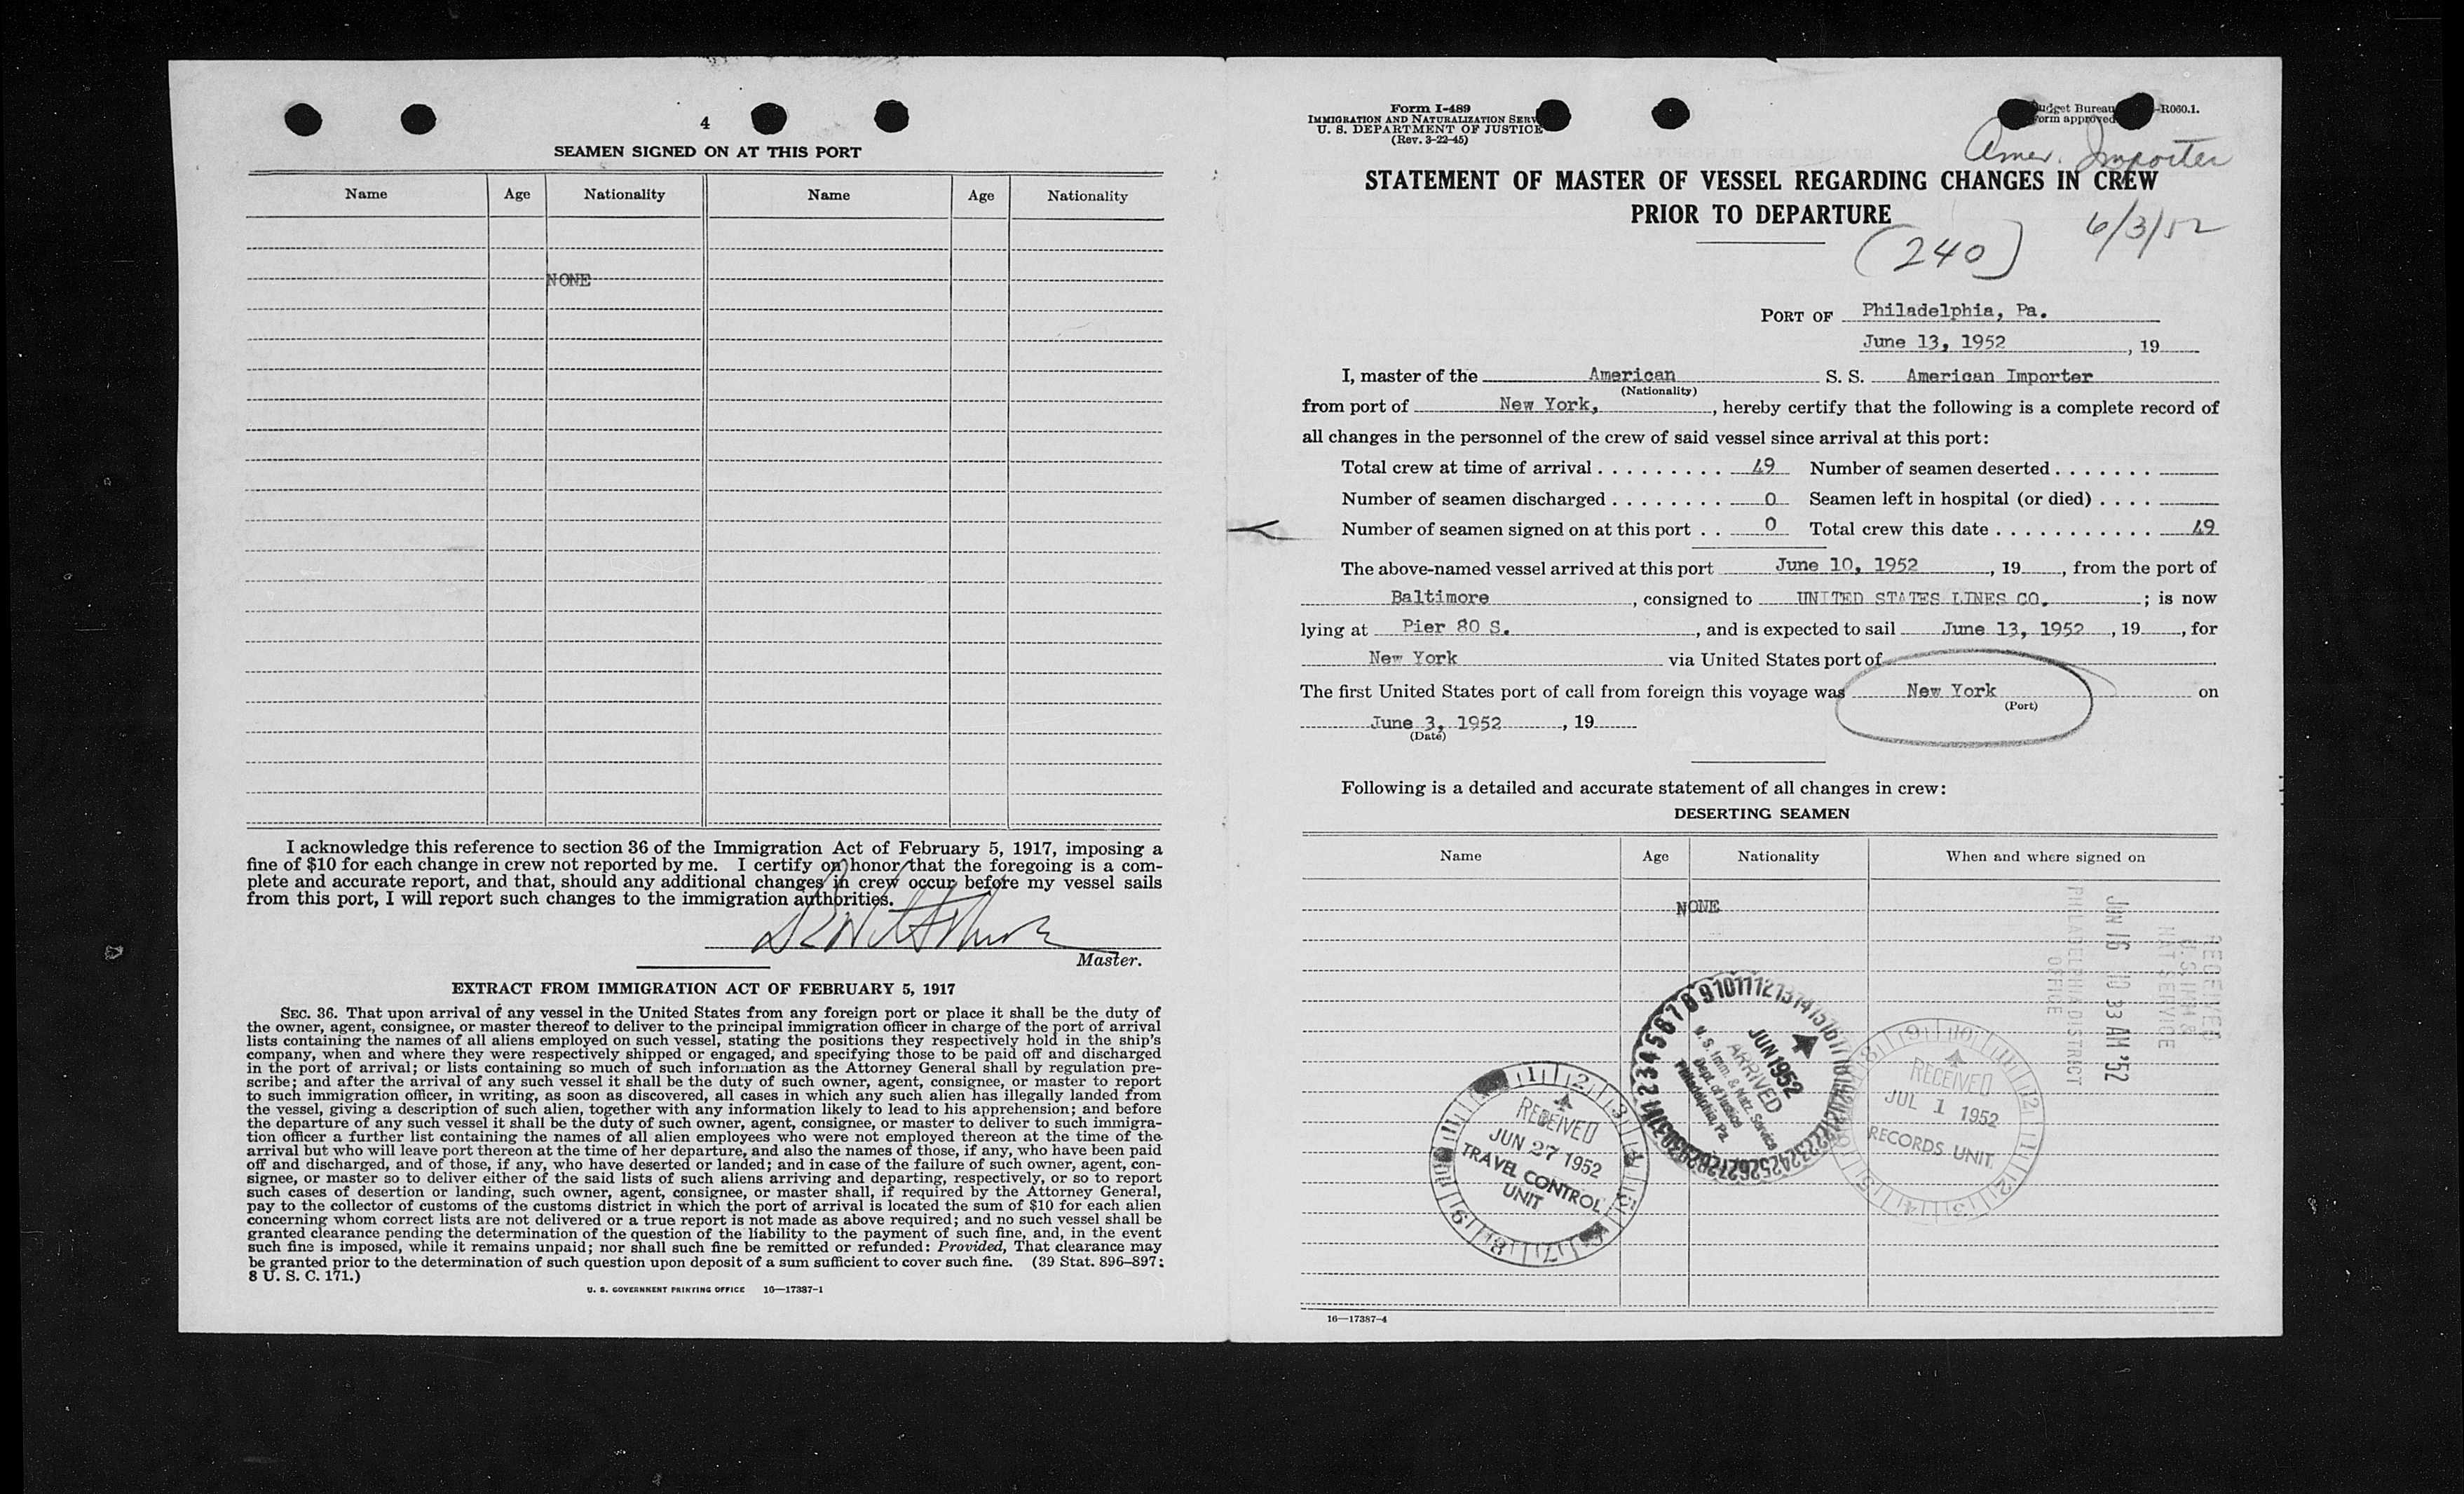 4
SEAMEN SIGNED ON AT THIS PORT
Name Age Nationality Name Age Nationality
NONE
I acknowledge this reference to section 36 of the Immigration Act of February 5, 1917, imposing a
fine of $10 for each change in crew not reported by me. I certify on honor that the foregoing is a com-
plete and accurate report, and that, should any additional changes in crew occur before my vessel sails
from this port, I will report such changes to the immigration authorities.
Master.
EXTRACT FROM IMMIGRATION ACT OF FEBRUARY 5, 1917
SEC. 36. That upon arrival of any vessel in the United States from any foreign port or place it shall be the duty of
the owner, agent, consignee, or master thereof to deliver to the principal immigration officer in charge of the port of arrival
lists containing the names of all aliens employed on such vessel, stating the positions they respectively hold in the ship's
company, when and where they were respectively shipped or engaged, and specifying those to be paid off and discharged
in the port of arrival; or lists containing so much of such information as the Attorney General shall by regulation pre-
scribe; and after the arrival of any such vessel it shall be the duty of such owner, agent, consignee, or master to report
to such immigration officer, in writing, as soon as discovered, all cases in which any such alien has illegally landed from
the vessel, giving a description of such alien, together with any information likely to lead to his apprehension; and before
the departure of any such vessel it shall be the duty of such owner, agent, consignee, or master to deliver to such immigra-
tion officer a further list containing the names of all alien employees who were not employed thereon at the time of the
arrival but who will leave port thereon at the time of her departure, and also the names of those, if any, who have been paid
off and discharged, and of those, if any, who have deserted or landed; and in case of the failure of such owner, agent, con-
signee, or master so to deliver either of the said lists of such aliens arriving and departing, respectively, or so to report
such cases of desertion or landing, such owner, agent, consignee, or master shall, if required by the Attorney General,
pay to the collector of customs of the customs district in which the port of arrival is located the sum of $10 for each alien
concerning whom correct lists are not delivered or a true report is not made as above required; and no such vessel shall be
granted clearance pending the determination of the question of the liability to the payment of such fine, and, in the event
such fine is imposed, while it remains unpaid; nor shall such fine be remitted or refunded: Provided, That clearance may
be granted prior to the determination of such question upon deposit of a sum sufficient to cover such fine. (39 Stat. 896–897;
8 U. S. C. 171.)
U. S. GOVERNMENT PRINTING OFFICE 16—17387-1
Form I-489
IMMIGRATION AND NATURALIZATION SERV
U. S. DEPARTMENT OF JUSTICE
(Rev. 3-22-45)
udget Bureau -R060.1.
orm approved
Amer. Importer
STATEMENT OF MASTER OF VESSEL REGARDING CHANGES IN CREW
PRIOR TO DEPARTURE
6/3/52
(240)
PORT OF Philadelphia, Pa.
June 13, 1952, 19
I, master of the American S. S. American Importer
(Nationality)
from port of New York, , hereby certify that the following is a complete record of
all changes in the personnel of the crew of said vessel since arrival at this port:
Total crew at time of arrival . . . . . . . . . 49 Number of seamen deserted . . . . . . .
Number of seamen discharged . . . . . . . . 0 Seamen left in hospital (or died) . . . .
Number of seamen signed on at this port . . 0 Total crew this date . . . . . . . . . . . 49
The above-named vessel arrived at this port June 10, 1952, 19, from the port of
Baltimore, consigned to UNITED STATES LINES CO. ; is now
lying at Pier 80 S., and is expected to sail June 13, 1952, 19, for
New York via United States port of
The first United States port of call from foreign this voyage was New York on
(Port)
June 3, 1952, 19
(Date)
Following is a detailed and accurate statement of all changes in crew:
DESERTING SEAMEN
Name Age Nationality When and where signed on
NONE
RECEIVED
U.S. IMM &
NAT SERVICE
JUN 16 10 33 AM '52
PHILADELPHIA DISTRICT
OFFICE
JUN 1952
ARRIVED
U. S. Imm. & Natz. Service
Dept. of Justice
Philadelphia, Pa.
RECEIVED
JUN 27 1952
TRAVEL CONTROL
UNIT
RECEIVED
JUL 1 1952
RECORDS UNIT
16—17387-4